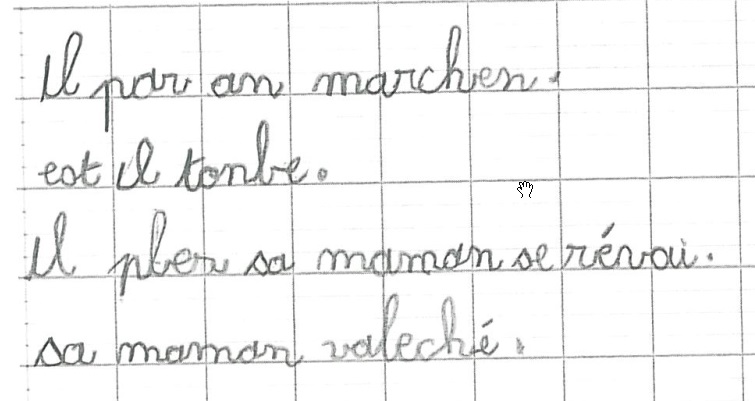 Il par an marchen.
est il tonbe.
Il pler sa maman se révai.
sa maman valeché.